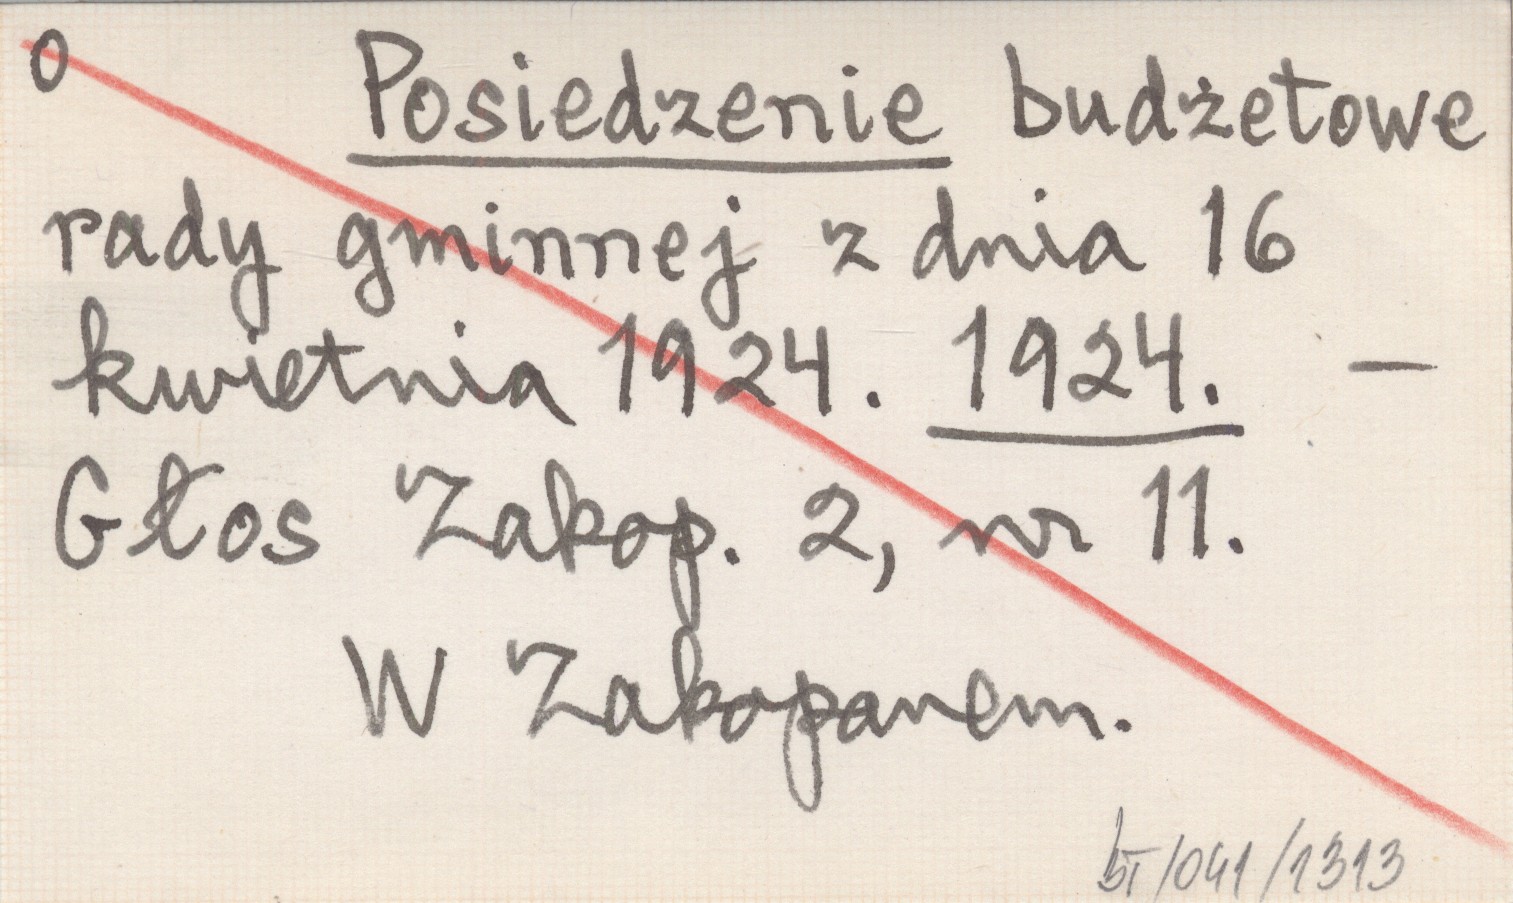 0 Posiedzenie budżetowe
rady gminnej z dnia 16
kwietnia 1924. 1924. —
Głos Zakop. 2, nr 11.
W Zakopanem.
/041/1313